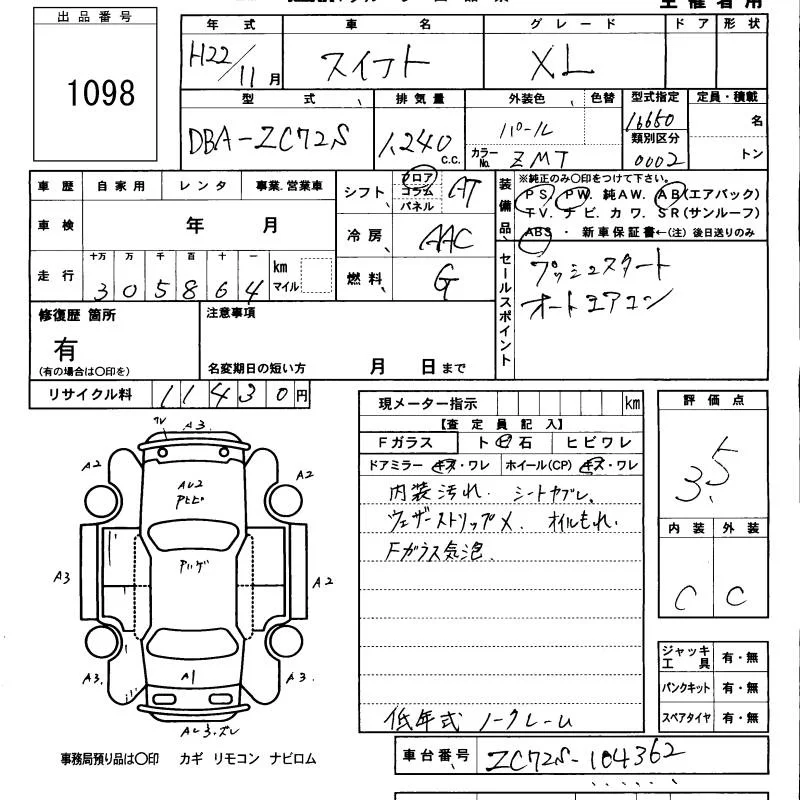 出品番号
1098
年式 車名 グレード ドア 形状
H22/11月 スイフト XL
型式 排気量 外装色 色替 型式指定 定員・積載
DBA-ZC72S 1,240 C.C. パール 16650 名
カラーNo. ZMT 類別区分 0002 トン
車歴 自家用 レンタ 事業.営業車
車検 年 月
走行 十万 万 千 百 十 一
305864 km マイル
シフト フロア コラム パネル AT
冷房 AAC
燃料 G
装備品 ※純正のみ○印をつけて下さい。
PS. PW. 純AW. AB(エアバック)
TV. ナビ. カワ. SR(サンルーフ)
ABS ・ 新車保証書←(注) 後日送りのみ
セールスポイント
プッシュスタート
オートエアコン
修復歴 箇所
有
(有の場合は○印を)
注意事項
名変期日の短い方 月 日まで
リサイクル料 11430円
現メーター指示 km
【査定員記入】
Fガラス ト 石 ヒビワレ
ドアミラー キズ・ワレ ホイール(CP) キズ・ワレ
内装汚れ. シートヤブレ.
ウェザーストリップメ. オイルもれ.
Fガラス気泡.
低年式 ノークレーム
評価点
3.5
内装 外装
C C
ジャッキ工具 有・無
パンクキット 有・無
スペアタイヤ 有・無
A3
A2
A2
AU2
A3
A2
A3.
A1
A3.
事務局預り品は○印 カギ リモコン ナビロム
車台番号 ZC72S-104362